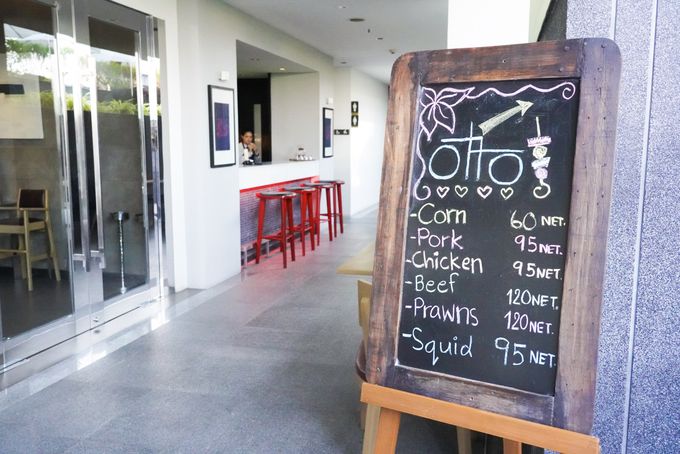 otto
-Corn 60 NET.
-Pork 95 NET.
-Chicken 95 NET.
-Beef 120 NET.
-Prawns 120 NET.
-Squid 95 NET.